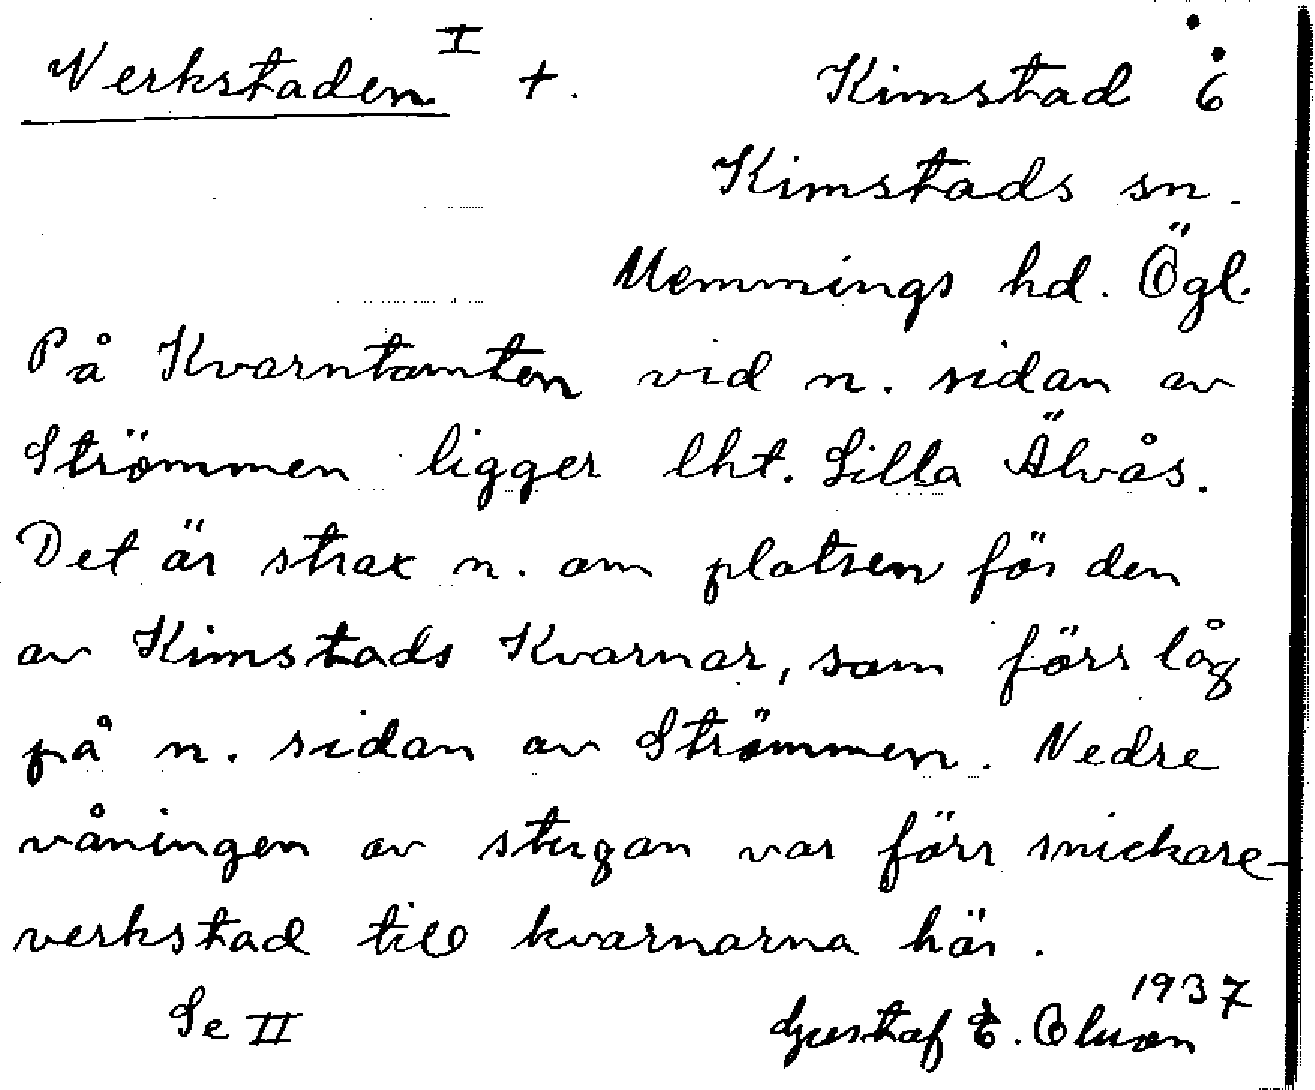 Verkstaden I +. Kimstad 6
Kimstads sn.
Memmings hd. Ögl.
På Kvarntomten vid n. sidan av
Strömmen ligger lht. Lilla Älvås.
Det är strax n. om platsen för den
av Kimstads Kvarnar, som förr låg
på n. sidan av Strömmen. Nedre
våningen av stugan var förr snickare-
verkstad till kvarnarna här.
Se II 1937
Gustaf E. Olsson